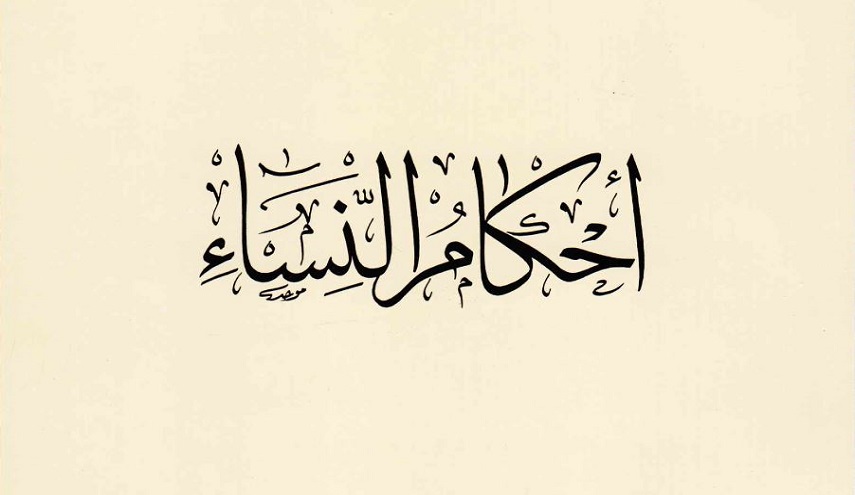 أَحْكَامُ النِّسَاءِ